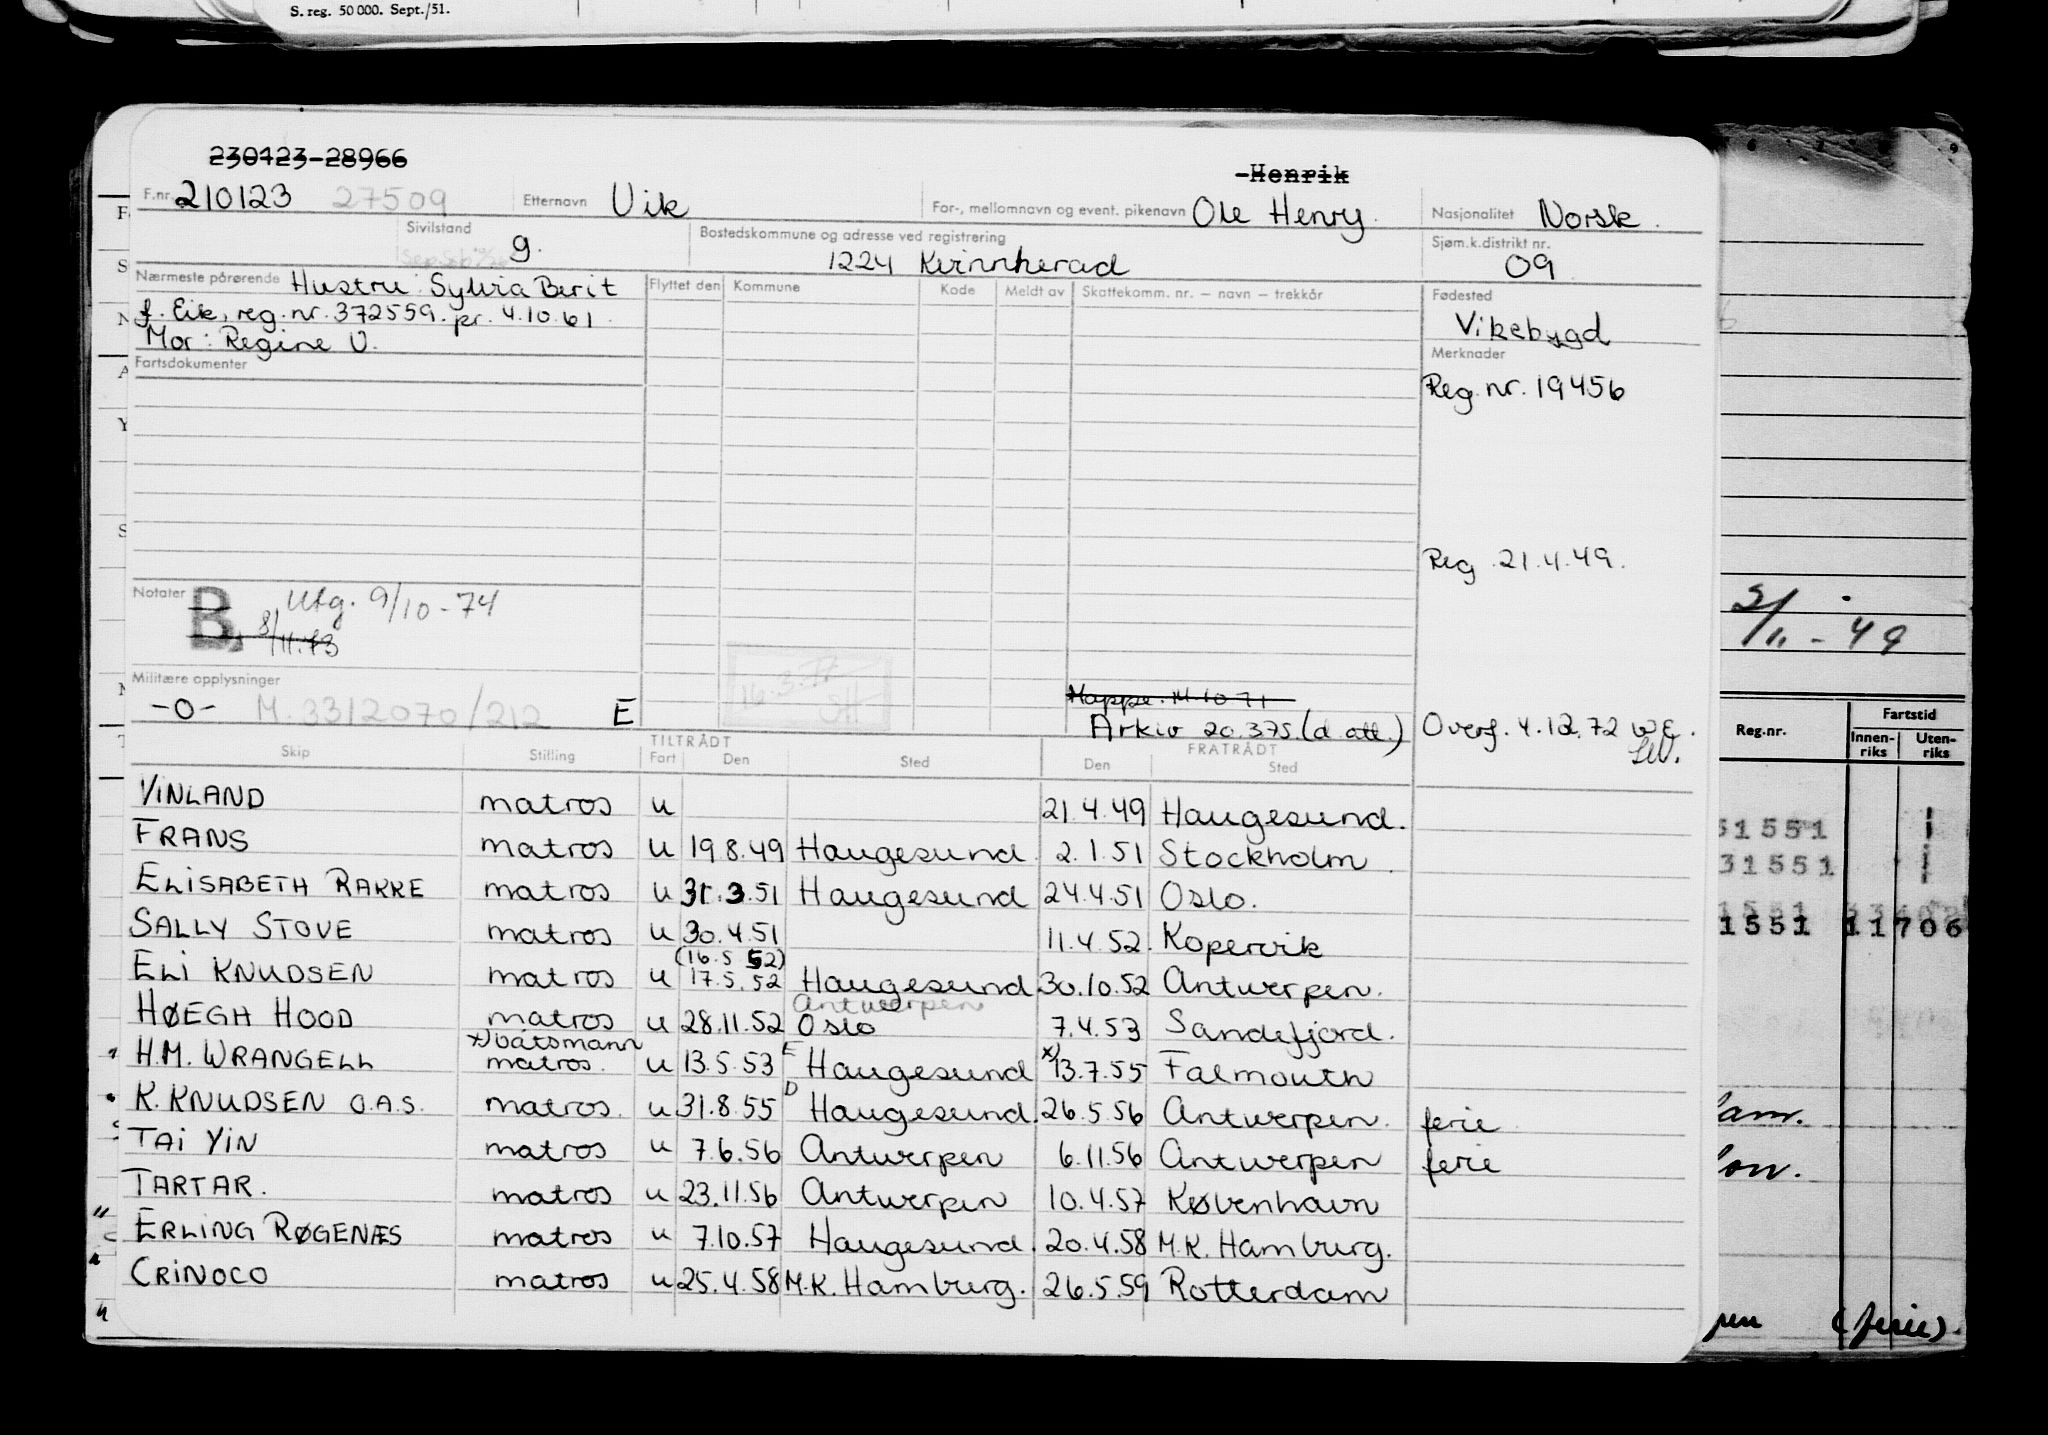 S. reg. 50 000. Sept./51.
230123-28966
-Henrik
F.nr. 210123 27509 Etternavn Vik For-, mellomnavn og event. pikenavn Ole Henry. Nasjonalitet Norsk.
Sivilstand g. Bostedskommune og adresse ved registrering 1224 Kvinnherad Sjøm.k.distrikt nr. 09
Nærmeste pårørende Hustru: Sylvia Berit Flyttet den Kommune Kode Meldt av Skattekomm. nr. — navn — trekkår Fødested
f. Eik, reg.nr. 372559. pr. 4.10.61. Vikebygd
Mor: Regine V. Merknader
Fartsdokumenter Reg.nr. 19456
Reg. 21.4.49.
Notater B, Utg. 9/10-74
8/11.73
2/11-49
Militære opplysninger
-0- M.3312070/212 E Mappe. 14.10.71
Arkiv 20.375.(d.att.) Overf. 4.12.72 WE.
Reg.nr. Fartstid
Innen-riks Uten-riks
Skip Stilling TILTRÅDT FRATRÅDT
Fart Den Sted Den Sted
VINLAND matros u 21.4.49 Haugesund.
FRANS matros u 19.8.49 Haugesund. 2.1.51 Stockholm.
ELISABETH BAKKE matros u 31.3.51 Haugesund 24.4.51 Oslo.
SALLY STOVE matros u 30.4.51 11.4.52. Kopervik
(16.5.52)
ELI KNUDSEN matros u 17.5.52 Haugesund 30.10.52 Antwerpen.
Antwerpen
HØEGH HOOD matros u 28.11.52 Oslo 7.4.53 Sandefjord.
x) båtsmann
H.M. WRANGELL matros. u 13.5.53 E Haugesund x) 13.7.55 Falmouth
K. KNUDSEN O.A.S. matros. u 31.8.55 D Haugesund. 26.5.56 Antwerpen. ferie
TAI YIN matros u 7.6.56 Antwerpen 6.11.56 Antwerpen ferie
TARTAR. matros u 23.11.56 Antwerpen 10.4.57 København
ERLING RØGENÆS matros u 7.10.57 Haugesund. 20.4.58 M.K. Hamburg.
CRINOCO matros u 25.4.58 M.K. Hamburg. 26.5.59 Rotterdam
31551
1551 11706
(ferie).